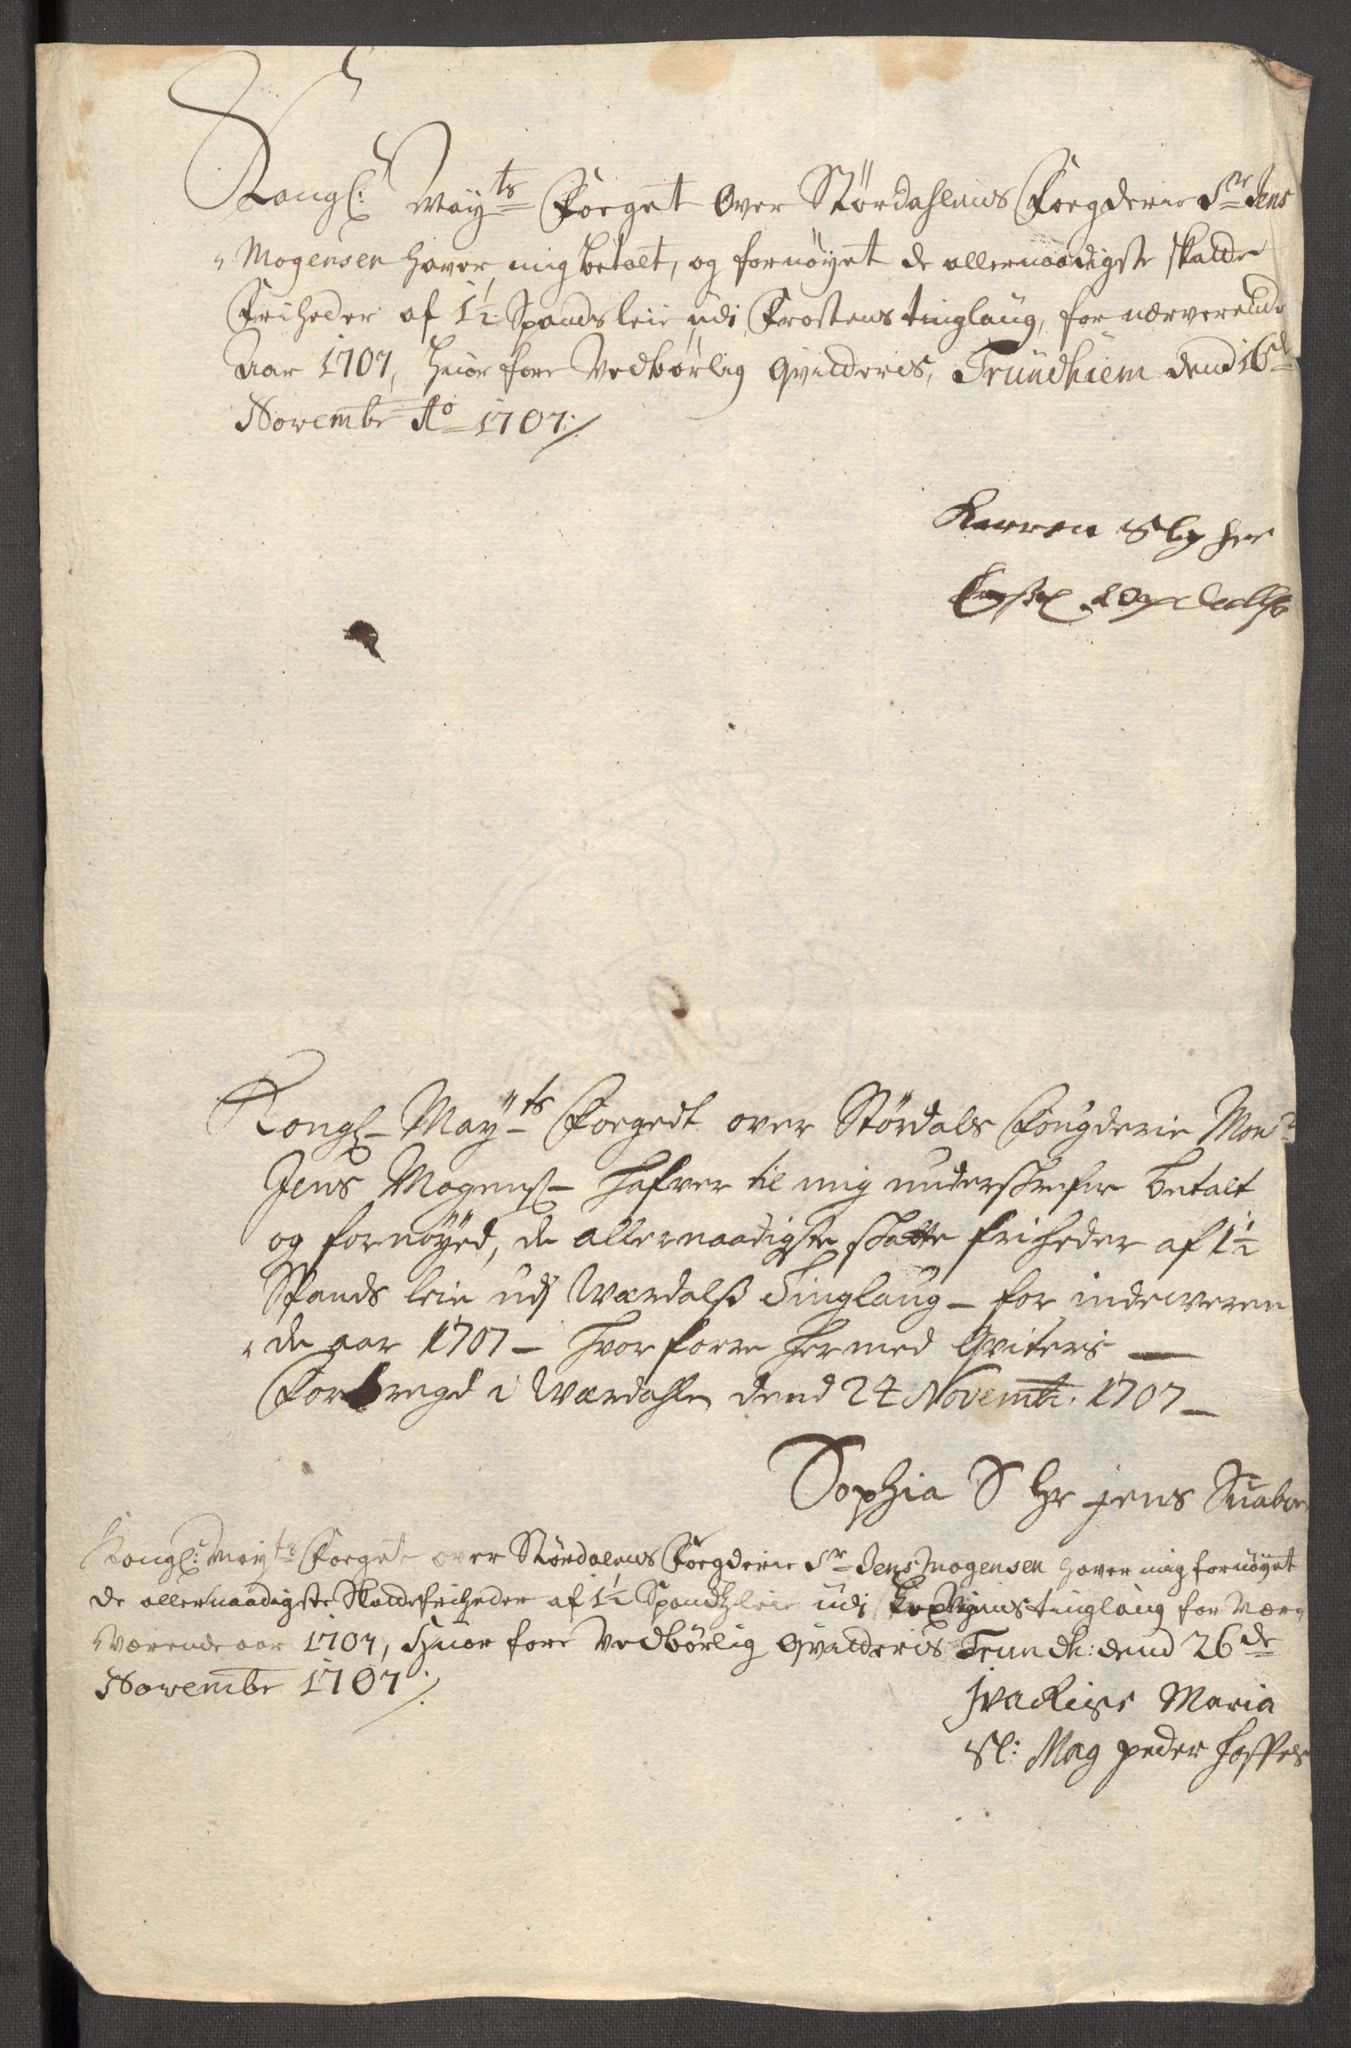 Kongl: May:ts Foeget Over Stördahlens Foegderie Sr Jens
Mogensen haver mig betalt, og fornöyet de allernaadigste skatte
Friheder af 1½ Spands leie udi Frostens tinglaug, for nærverende
Aar 1707, huorfore Vedbörlig Qvitderis, Trundhiem dend 16de
Novembr Ao 1707:/
Karren Slg her
Kongl May:ts Foegedt over Stördals Fougderie Monsr
Jens Mogens: hafver til mig underskrefne betalt
og fornöyed, de allernaadigste skatte friheder af 1½
Spands leie udj Værdalß Tinglaug - for indeweren
de aar 1707 - hvorforre hermed Qviteris -
Forbregd i Værdahle dend 24 Novembr. 1707 -
Sophia S Hr jens Suabor
Kongl: May:ts Foeget over Stördalens Foegderie Sr Jens Mogensen haver mig fornöyet
de allernaadigste Skattefriheder af 1½ Spands leie udi tinglaug for Nær
værende aar 1707, huorfore Vedbörlig Qvitderis Trundh: dend 26de
Novembr 1707:/
Maria
Sl: Mag peder